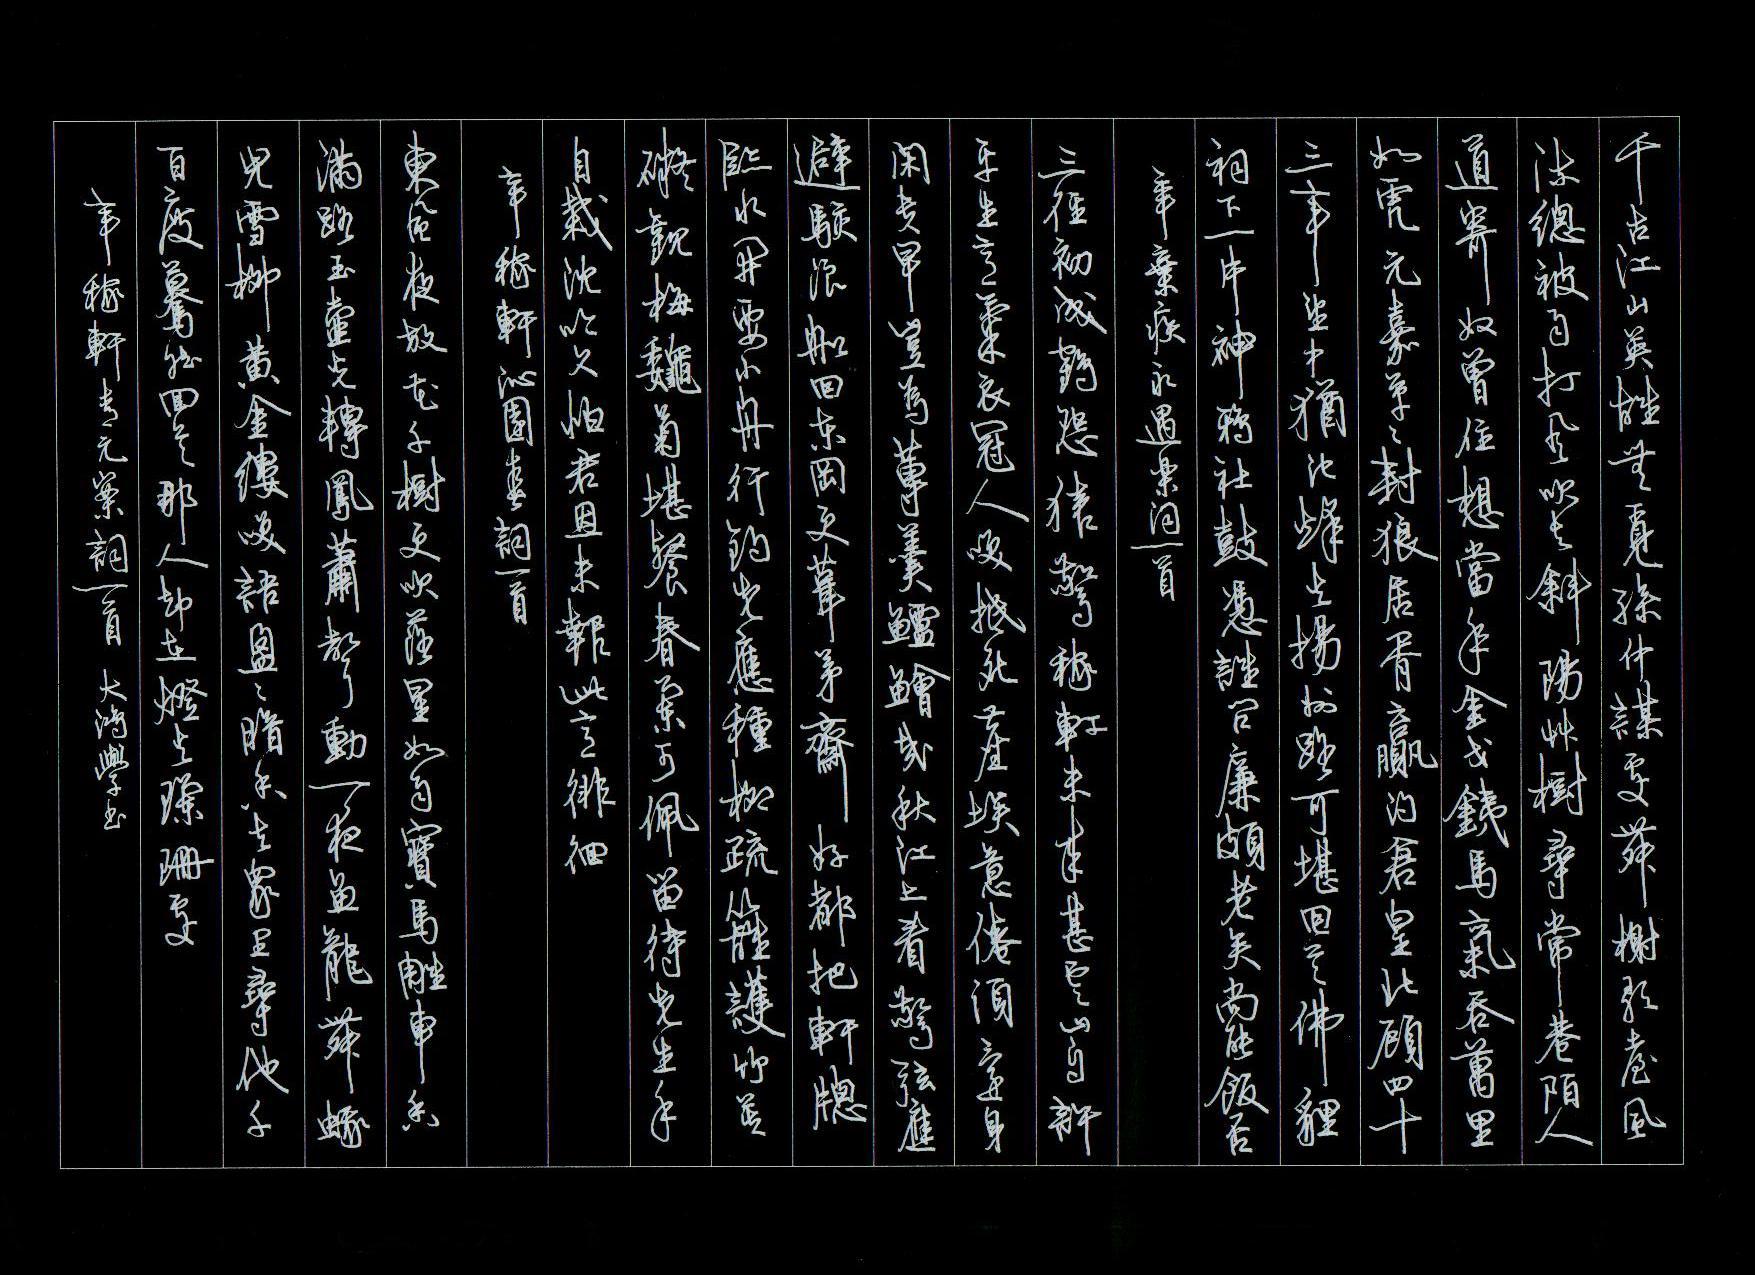 千古江山英雄無覓孫仲謀處舞榭歌臺風
流總被雨打風吹去斜陽艸樹尋常巷陌人
道寄奴曾住想當年金戈鐵馬氣吞萬里
如虎元嘉草〻封狼居胥贏得倉皇北顧四十
三年望中猶記烽火揚州路可堪回首佛貍
祠下一片神鴉社鼓憑誰問廉頗老矣尚能飯否
辛棄疾永遇樂詞一首
三徑初成鶴怨猿驚稼軒未來甚雲山自許
平生意氣衣冠人笑抵死塵埃意倦須還身
閑貴早豈為蓴羹鱸鱠哉秋江上看驚弦雁
避駭浪船回東岡更葺茅齋好都把軒牕
臨水開要小舟行釣先應種柳疏籬護竹莫
礙觀梅秋菊堪餐春蘭可佩留待先生手
自栽沈吟久怕君恩未報此意徘徊
辛稼軒沁園春詞一首
東風夜放花千樹更吹落星如雨寶馬雕車香
滿路玉壺光轉鳳簫聲動一夜魚龍舞蛾
兒雪柳黃金縷笑語盈〻暗香去眾里尋他千
百度驀然回首那人卻在燈火璨珊處
辛稼軒青元案詞一首 大鴻學書